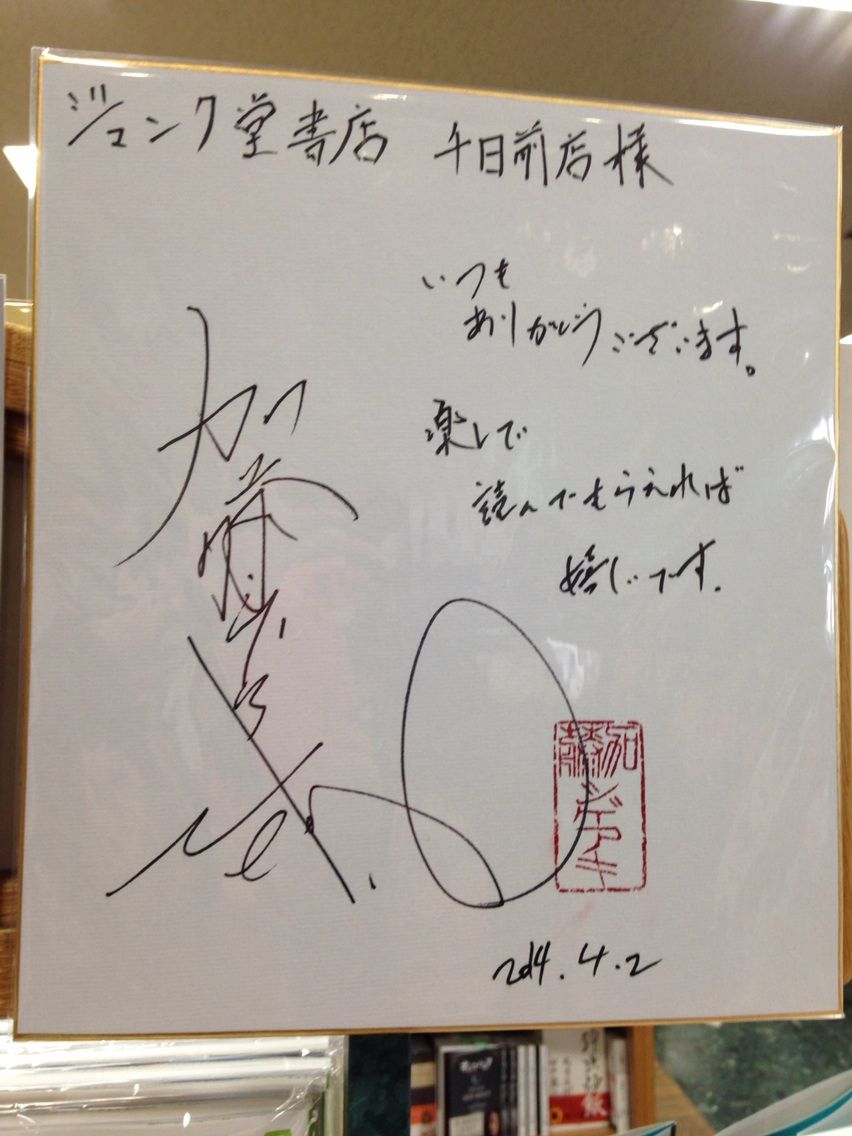 ジュンク堂書店 千日前店様
いつも
ありがとうございます。
楽しんで
読んでもらえれば
嬉しいです.
加藤シゲアキ
加藤
シゲアキ
2014.4.2